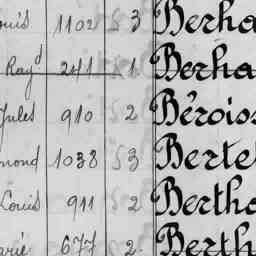 ouis 1102 53 Berha
Rayd 241 1 Berha
Jules 910 2 Bérois
mond 1038 53 Berte
Louis 911 2 Bertho
arie 677 2 Berth